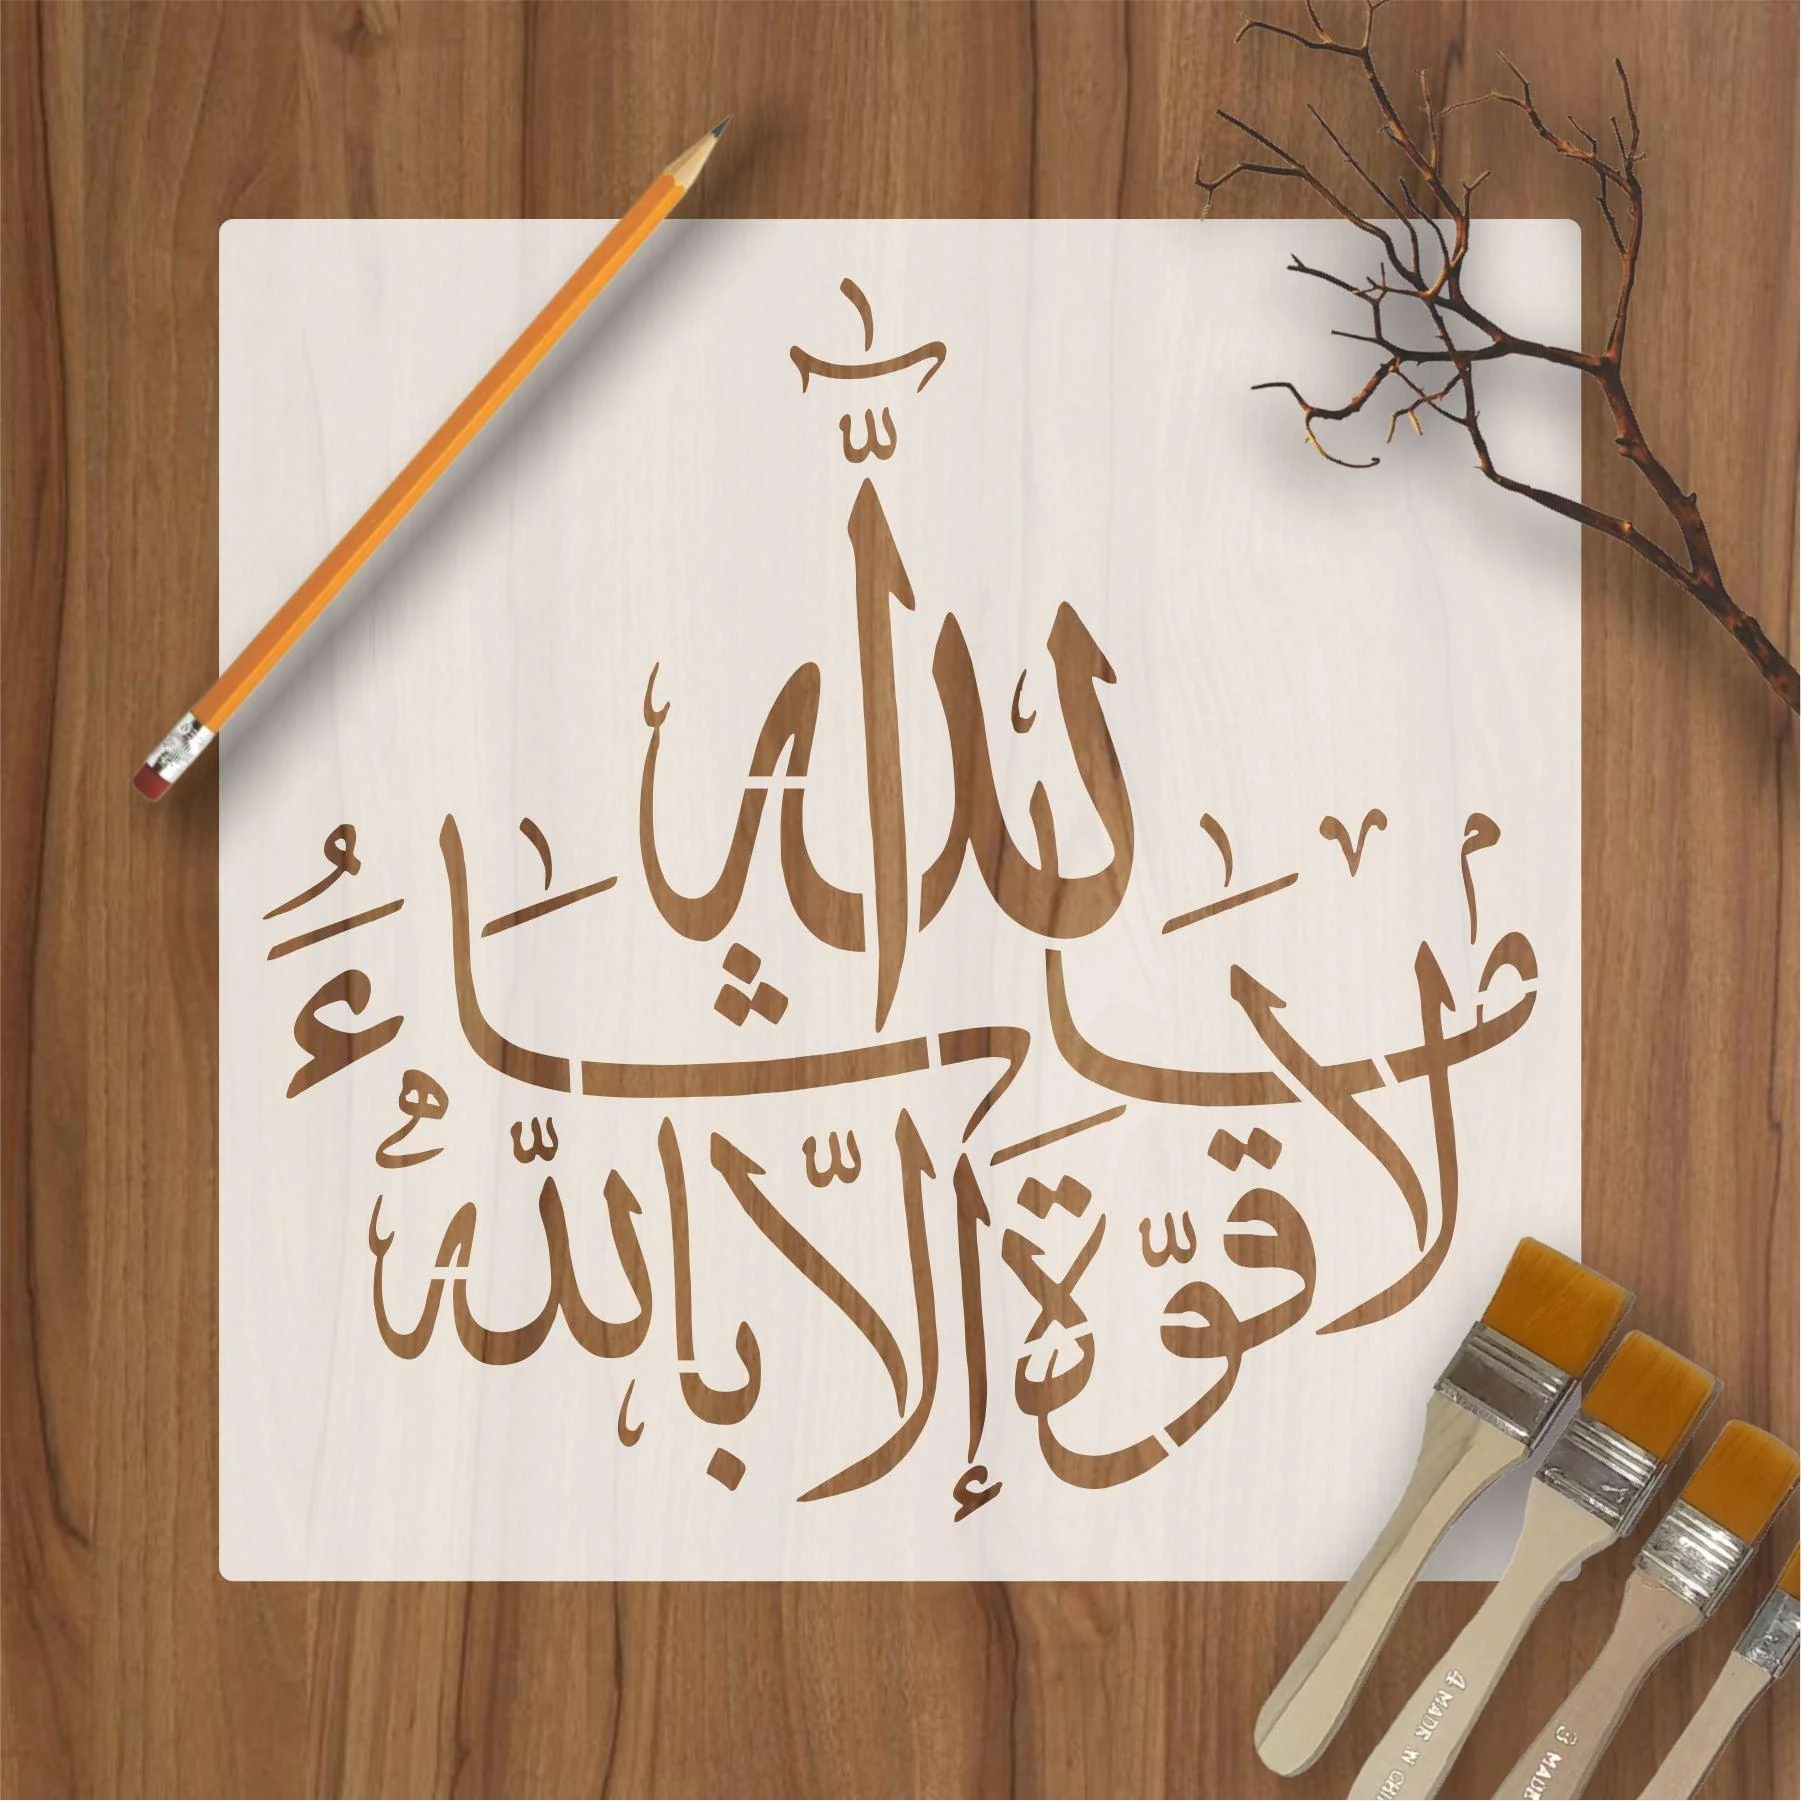 مَا شَاءَ اللّٰه
لا قوّةَ إلّا باللّه
4 MADE IN CHI
3 MADE